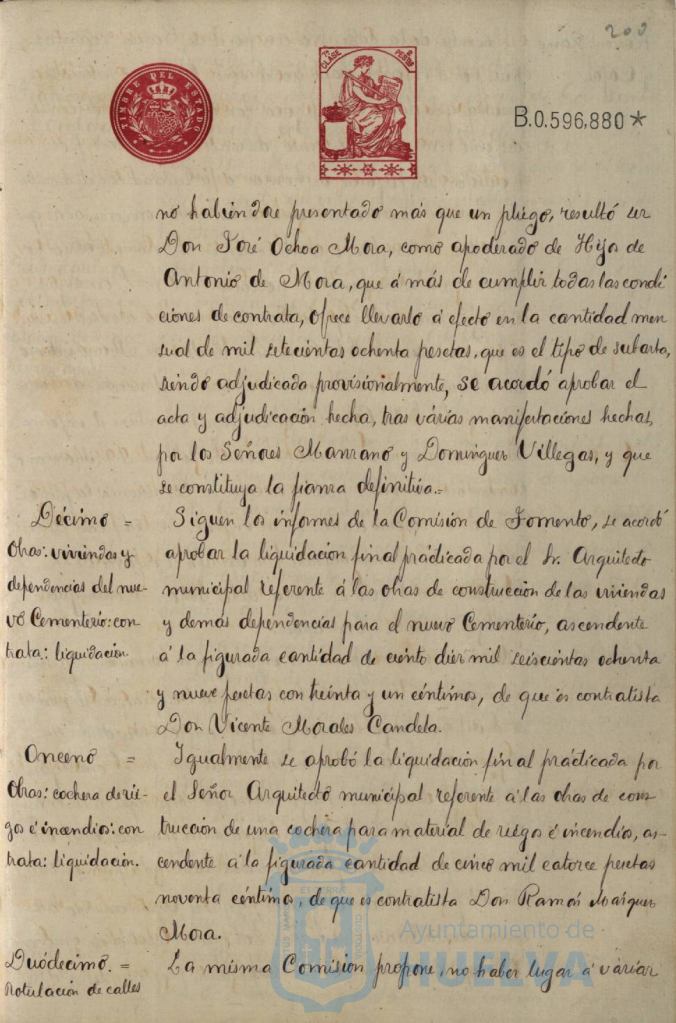 200
TIMBRE DEL ESTADO
7ª CLASE
2 PESETAS
B.0.596,880*
no habiendose presentado más que un pliego, resultó ser
Don José Ochoa Mora, como apoderado de Hija de
Antonio de Mora, que á más de cumplir todas las condi
ciones de contrata, ofrece llevarlo á efecto en la cantidad men
sual de mil setecientas ochenta pesetas, que es el tipo de subasta,
siendo adjudicada provisionalmente, se acordó aprobar el
acta y adjudicación hecha, tras várias manifestaciones hechas,
por los Señores Manzano y Dominguez Villegas, y que
se constituya la fianza definitiva.=
Décimo =
Obras: viviendas y
dependencias del nue-
vo Cementerio: con
trata: liquidación
Siguen los informes de la Comisión de Fomento, se acordó
aprobar la liquidación final prácticada por el Sr. Arquitecto
municipal referente á las obras de construcción de las viviendas
y demás dependencias para el nuevo Cementerio, ascendente
á la figurada cantidad de ciento diez mil seiscientas ochenta
y nueve pesetas con treinta y un céntimos, de que es contratista
Don Vicente Morales Candela.
Onceno =
Obras: cochera de rie-
gos é incendios: con
trata: liquidación.
Igualmente se aprobó la liquidación final prácticada por
el Señor Arquitecto municipal referente á las obras de cons
trucción de una cochera para material de riegos é incendio, as-
cendente á la figurada cantidad de cinco mil catorce pesetas
noventa céntimos, de que es contratista Don Ramón Márquez
Mora.
Duódecimo. =
Rotulación de calles
La misma Comisión propone, no haber lugar á váriar
Ayuntamiento de
HUELVA